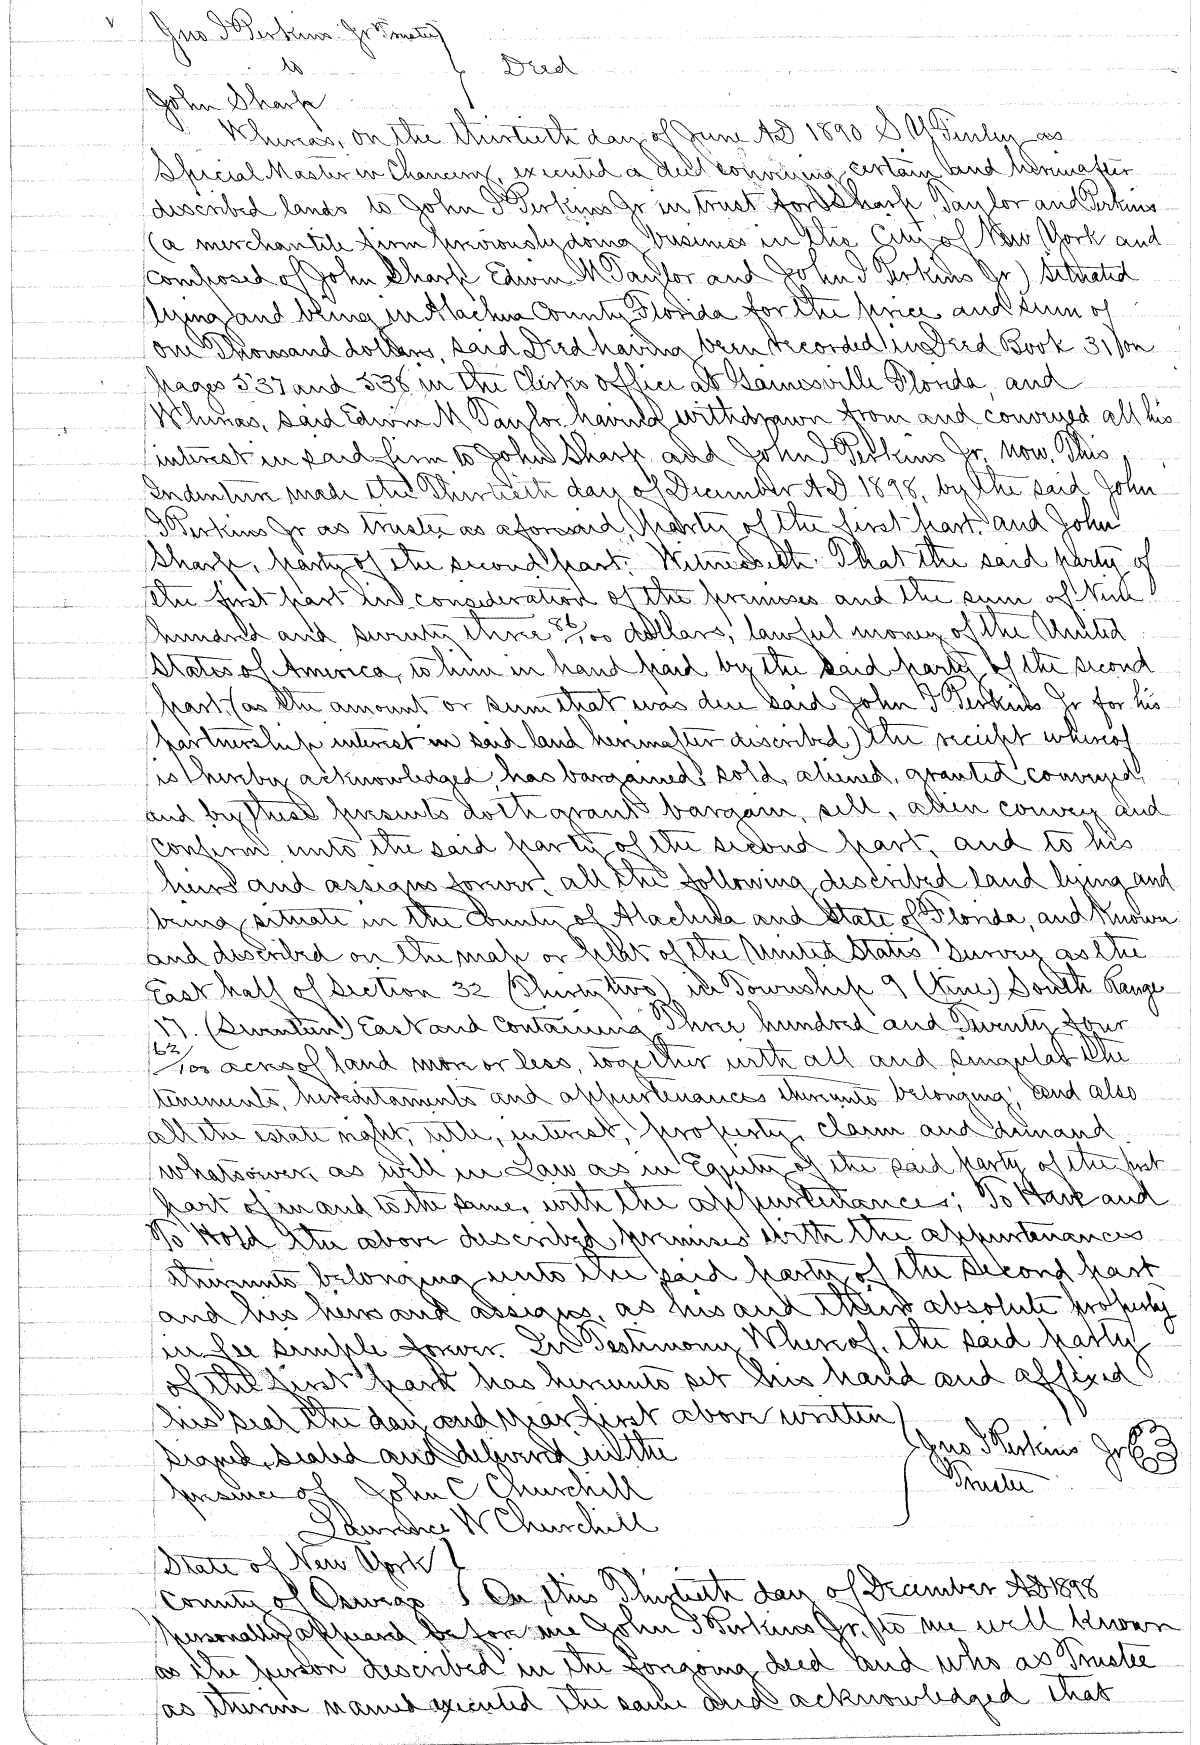 Jno I Perkins Jr Trustee
to Deed
John Sharp
Whereas, on the thirtieth day of June AD 1890 S Y Finley as
Special Master in Chancery, executed a deed conveying certain land hereinafter
described lands to John I Perkins Jr in trust for Sharp Taylor and Perkins
(a merchantile firm previously doing business in the City of New York and
composed of John Sharp Edwin M Taylor and John I Perkins Jr) situated
lying and being in Alachua County Florida for the price and sum of
One Thousand dollars, said Deed having been recorded in Deed Book 31 on
pages 537 and 538 in the Clerks office at Gainesville Florida, and
Whereas, said Edwin M Taylor having withdrawn from and conveyed all his
interest in said firm to John Sharp and John I Perkins Jr. Now, This
Indenture made the Thirtieth day of December AD 1898, by the said John
I Perkins Jr as trustee as aforesaid, party of the first part, and John
Sharp, party of the second part, Witnesseth. That the said party of
the first part in consideration of the premises and the sum of Nine
hundred and seventy three 86/100 dollars, lawful money of the United
States of America, to him in hand paid by the said party of the second
part, (as the amount or sum that was due said John I Perkins Jr for his
partnership interest in said land hereinafter described) the receipt whereof
is hereby acknowledged, has bargained sold, aliened, granted conveyed,
and by these presents doth grant bargain, sell, alien convey and
confirm unto the said party of the second part, and to his
heirs and assigns forever, all the following described land lying and
being situate in the County of Alachua and State of Florida, and known
and described on the map or plat of the United States Survey as the
East half of Section 32 (Thirty two) in Township 9 (Nine) South Range
17. (Seventeen) East and containing Three hundred and Twenty four
62/100 acres of land more or less, together with all and singular the
tenements, hereditaments and appurtenances thereunto belonging; and also
all the estate right, title, interest, property, claim and demand
whatsoever, as well in Law as in Equity of the said party of the first
part of in and to the same, with the appurtenances; To Have and
To Hold the above described premises with the appurtenances
thereunto belonging unto the said party of the second part
and his heirs and assigns, as his and their absolute property
in fee simple forever. In Testimony Whereof, the said party
of the first part has hereunto set his hand and affixed
his seal the day and year first above written
Signed, sealed and delivered in the Jno I Perkins Jr
presence of John C Churchill Trustee
Lawrence W Churchill
State of New York
County of Oswego On this Thirtieth day of December AD 1898
personally appeared before me John I Perkins Jr. to me well known
as the person described in the foregoing deed and who as Trustee
as therein named executed the same and acknowledged that